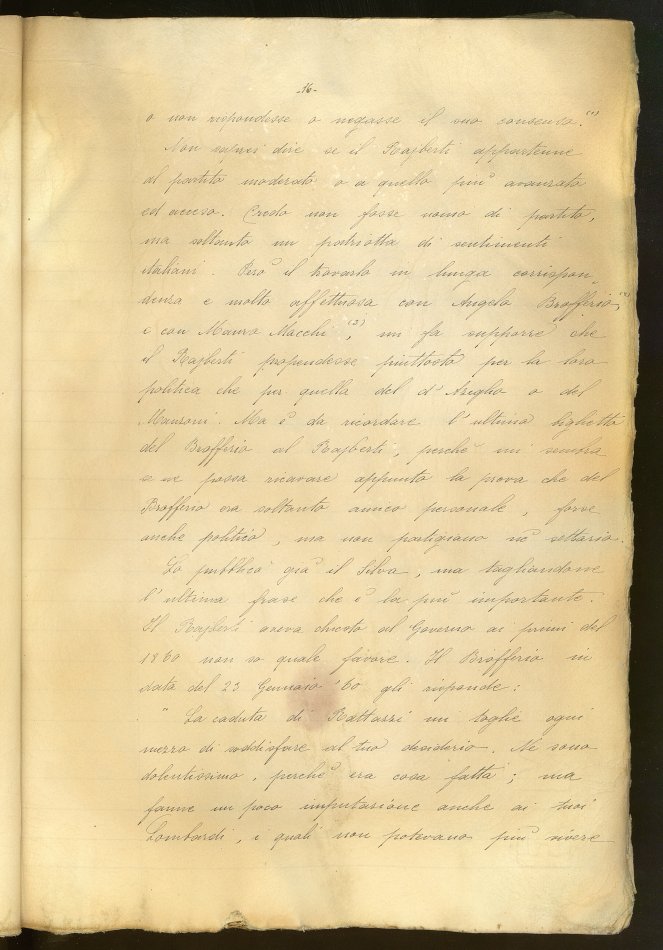 -16-
o non rispondesse o negasse il suo consenso." (1)
Non saprei dire se il Rajberti appartenne
al partito moderato o a quello più avanzato
ed acceso. Credo non fosse uomo di partito,
ma soltanto un patriotta di sentimenti
italiani. Però il trovarlo in lunga corrispon„
denza e molto affettuosa con Angelo Brofferio,
e con Mauro Macchi (2), mi fa supporre che
il Rajberti propendesse piuttosto per la loro
politica che per quella del d'Azeglio o del
Manzoni. Ma è da ricordare l'ultimo biglietto
del Brofferio al Rajberti, perchè mi sembra
se ne possa ricavare appunto la prova che del
Brofferio era soltanto amico personale, forse
anche politico, ma non partigiano nè settario.
Lo pubblicò già il Silva, ma tagliandone
l'ultima frase che è la più importante.
Il Rajberti aveva chiesto al Governo ai primi del
1860 non so quale favore. Il Brofferio in
data del 23 Gennaio '60 gli risponde:
" La caduta di Rattazzi mi toglie ogni
mezzo di soddisfare al tuo desiderio. Ne sono
dolentissimo, perchè era cosa fatta; ma
fanne un poco imputazione anche ai tuoi
Lombardi, i quali non potevano più vivere